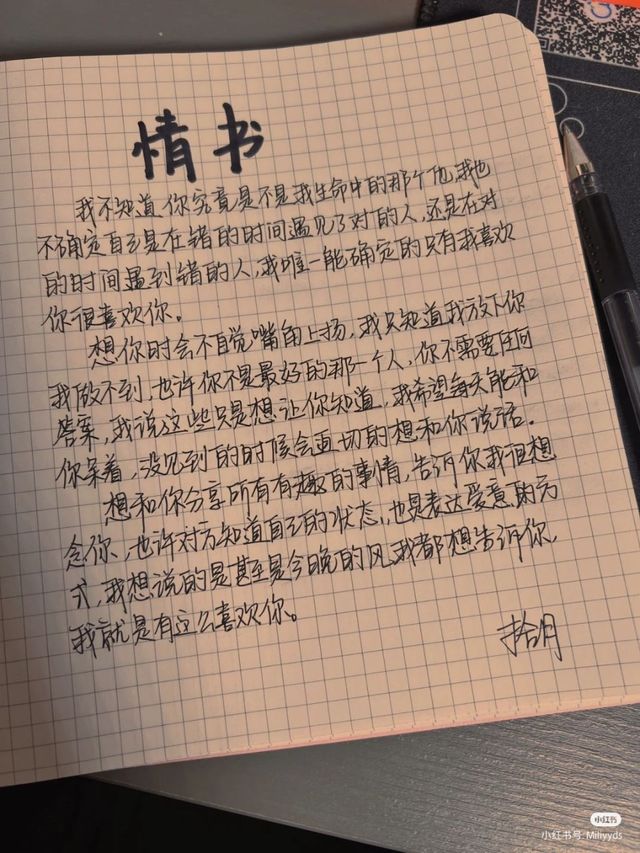 情书
我不知道你究竟是不是我生命中的那个他,我也
不确定自己是在错的时间遇见了对的人,还是在对
的时间遇到错的人,我唯一能确定的只有我喜欢
你很喜欢你。
想你时会不自觉嘴角上扬,我只知道我放下你
我做不到,也许你不是最好的那一个人,你不需要任何
答案,我说这些只是想让你知道,我希望每天能和
你呆着,没见到的时候会迫切的想和你说话.
想和你分享所有有趣的事情,告诉你我很想
念你,也许对方知道自己的状态,也是表达爱意的方
式,我想说的是甚至是今晚的风,我都想告诉你,
我就是有这么喜欢你。
拾月
3
小红书
小红书号: Miliyyds